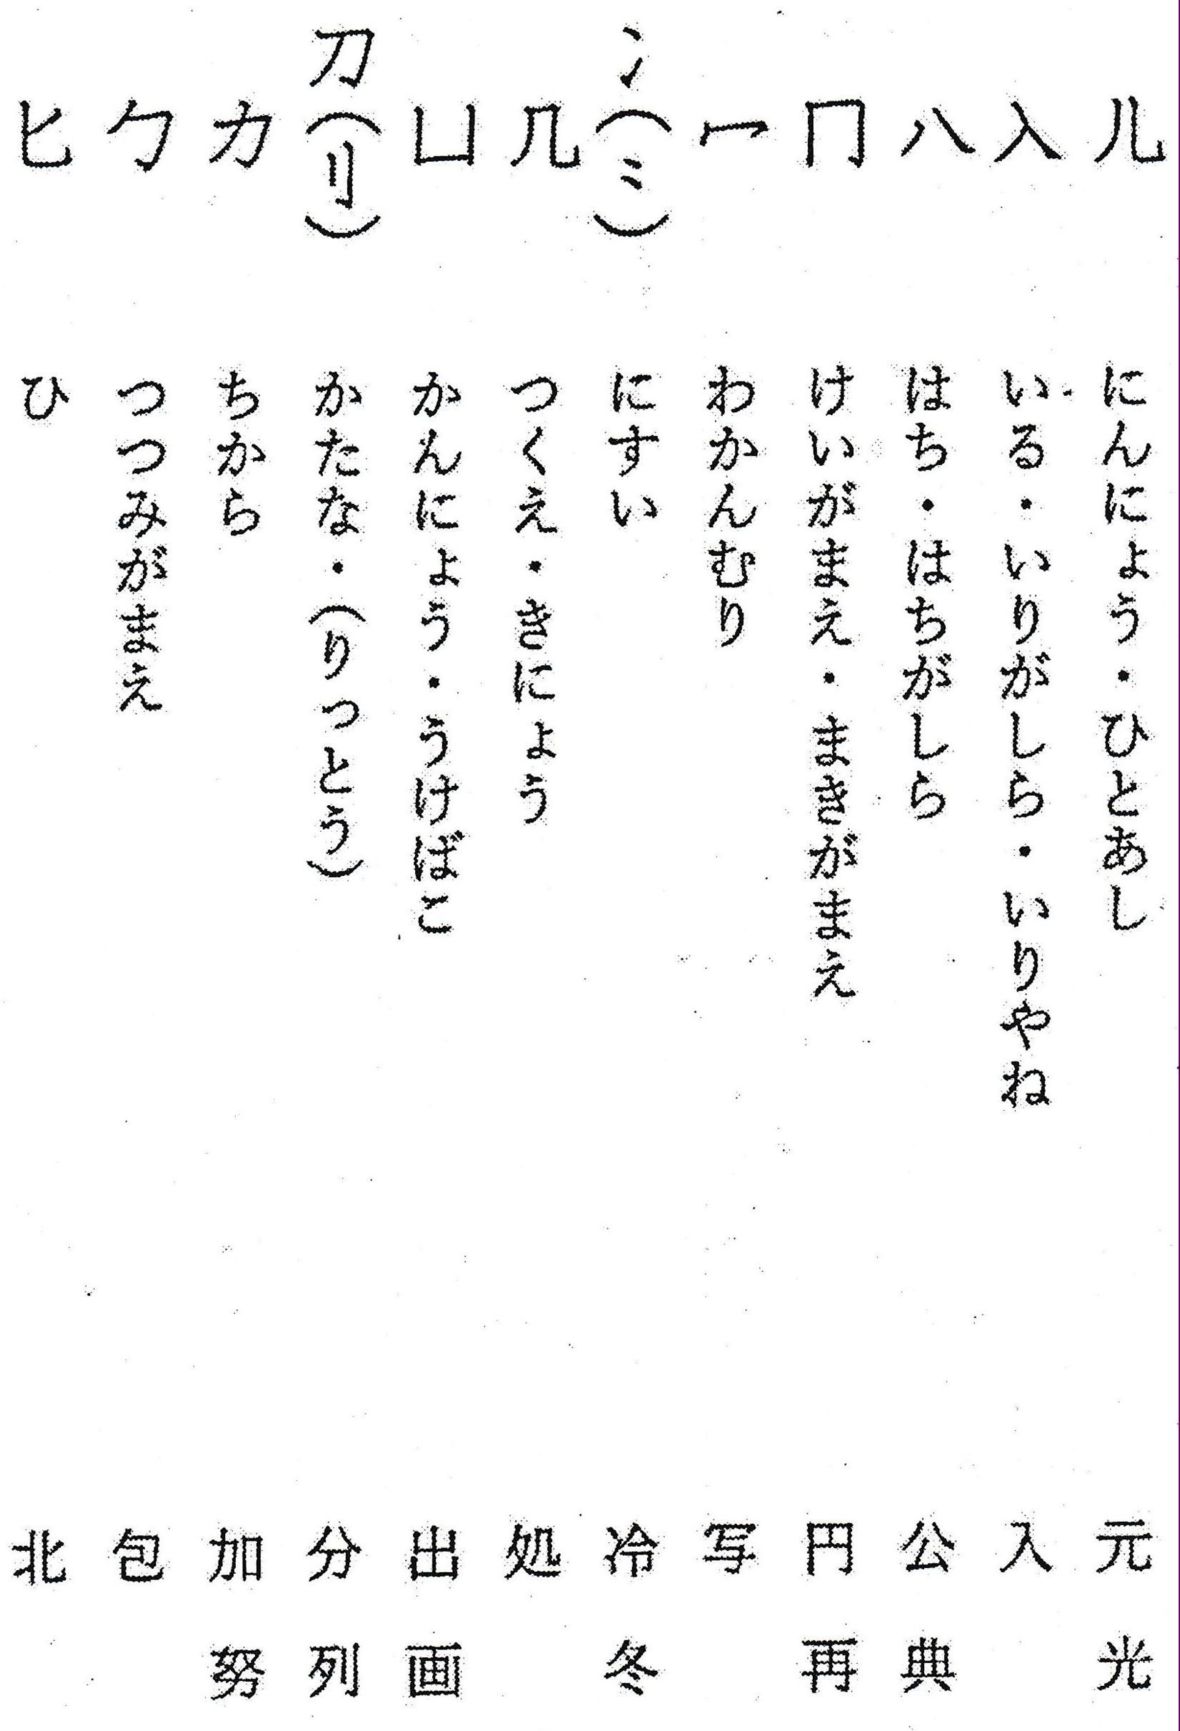 儿 にんにょう・ひとあし 元 光
入 いる・いりがしら・いりやね 入
八 はち・はちがしら 公 典
冂 けいがまえ・まきがまえ 円 再
冖 わかんむり 写
冫(⺀) にすい 冷 冬
几 つくえ・きにょう 処
凵 かんにょう・うけばこ 出 画
刀(刂) かたな・(りっとう) 分 列
力 ちから 加 努
勹 つつみがまえ 包
匕 ひ 北